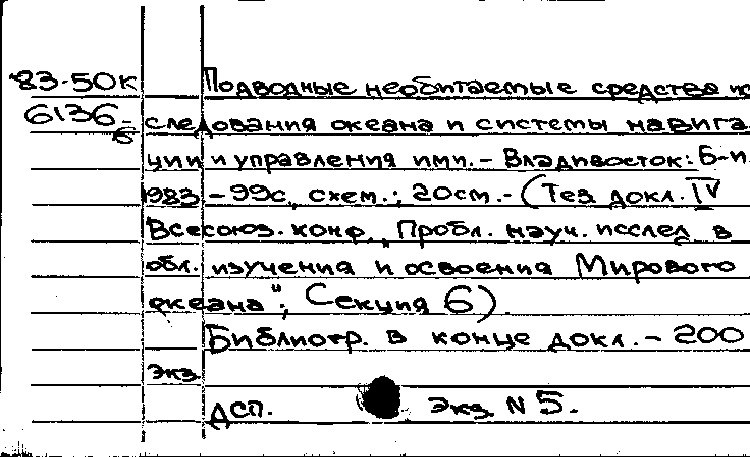 83-50к Подводные необитаемые средства ис
6136-6 следования океана и системы навига
ции и управления ими. - Владивосток: Б-и.
1983 - 99с, схем.; 20см. - (Тез. докл. IV
Всесоюз. конф. „Пробл. науч. исслед. в
обл. изучения и освоения Мирового
океана"; Секция 6).
Библиогр. в конце докл. - 200
экз.
ДСП. Экз. N 5.